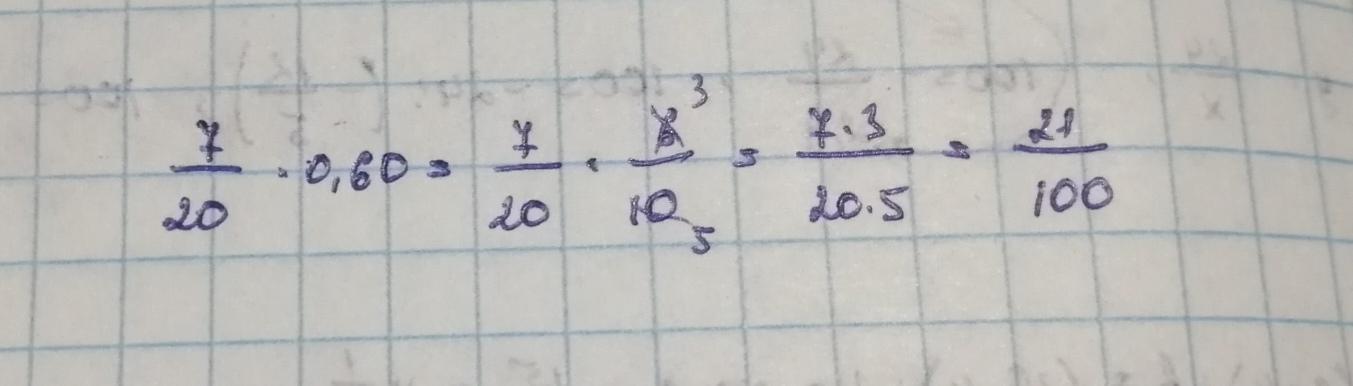 7/20 · 0,60 = 7/20 · 6̸ ³/10 ₅ = 7·3/20·5 = 21/100